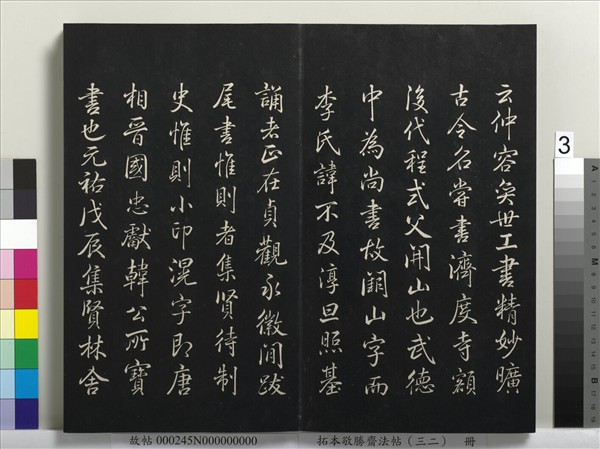 云仲容奕世工書精妙曠
古令名嘗書濟度寺額
後代程式父開山也武德
中為尚書故闕山字而
李氏諱不及淳旦照基
誦老正在貞觀永徽間跋
尾書惟則者集賢待制
史惟則小印滉字即唐
相晉國忠獻韓公所寶
書也元祐戊辰集賢林舍
故帖 000245N000000000
拓本敬勝齋法帖（三二） 冊
3